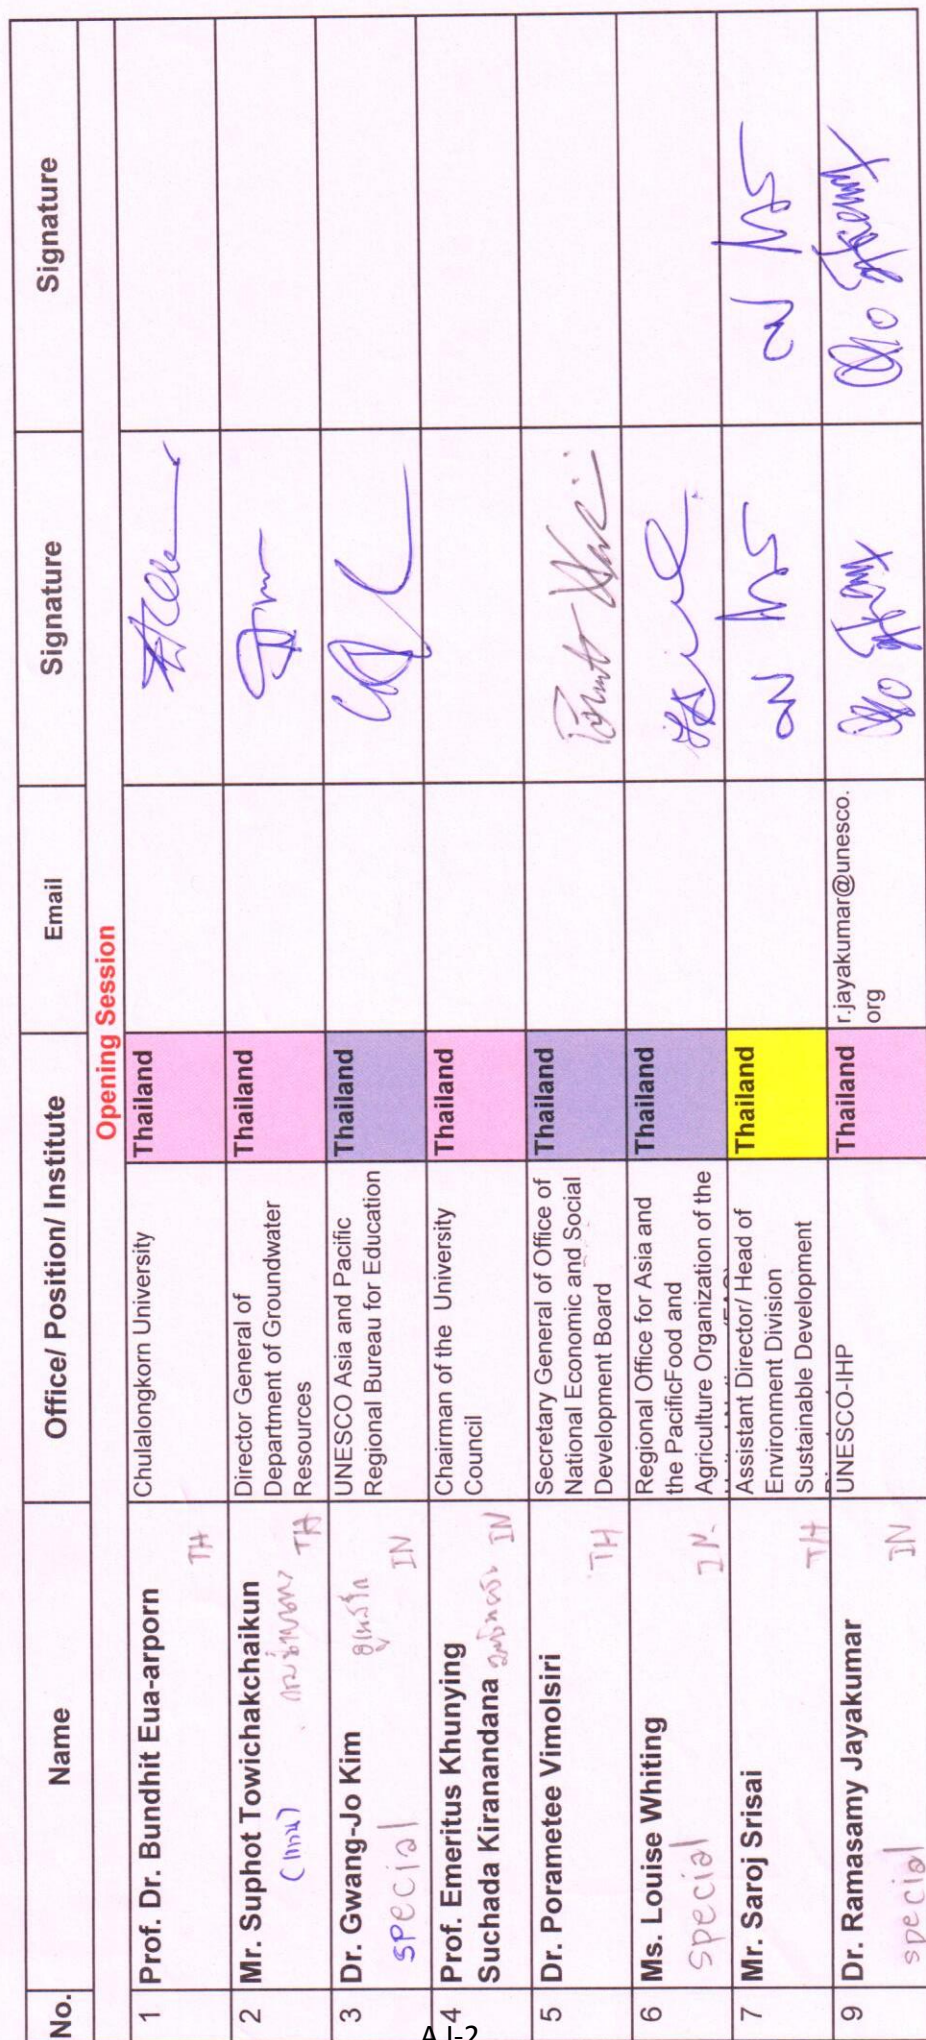 No.
Name
Office/ Position/ Institute
Email
Signature
Signature
Opening Session
1
Prof. Dr. Bundhit Eua-arporn
TH
Chulalongkorn University
Thailand
2
Mr. Suphot Towichakchaikun
(แทน)
TH
Director General of
Department of Groundwater
Resources
Thailand
3
Dr. Gwang-Jo Kim
special
IN
UNESCO Asia and Pacific
Regional Bureau for Education
Thailand
4
Prof. Emeritus Khunying
Suchada Kiranandana
IN
Chairman of the University
Council
Thailand
5
Dr. Porametee Vimolsiri
TH
Secretary General of Office of
National Economic and Social
Development Board
Thailand
6
Ms. Louise Whiting
special
IN.
Regional Office for Asia and
the PacificFood and
Agriculture Organization of the
Thailand
7
Mr. Saroj Srisai
TH
Assistant Director/ Head of
Environment Division
Sustainable Development
Thailand
9
Dr. Ramasamy Jayakumar
special
IN
UNESCO-IHP
Thailand
r.jayakumar@unesco.
org
A I-2